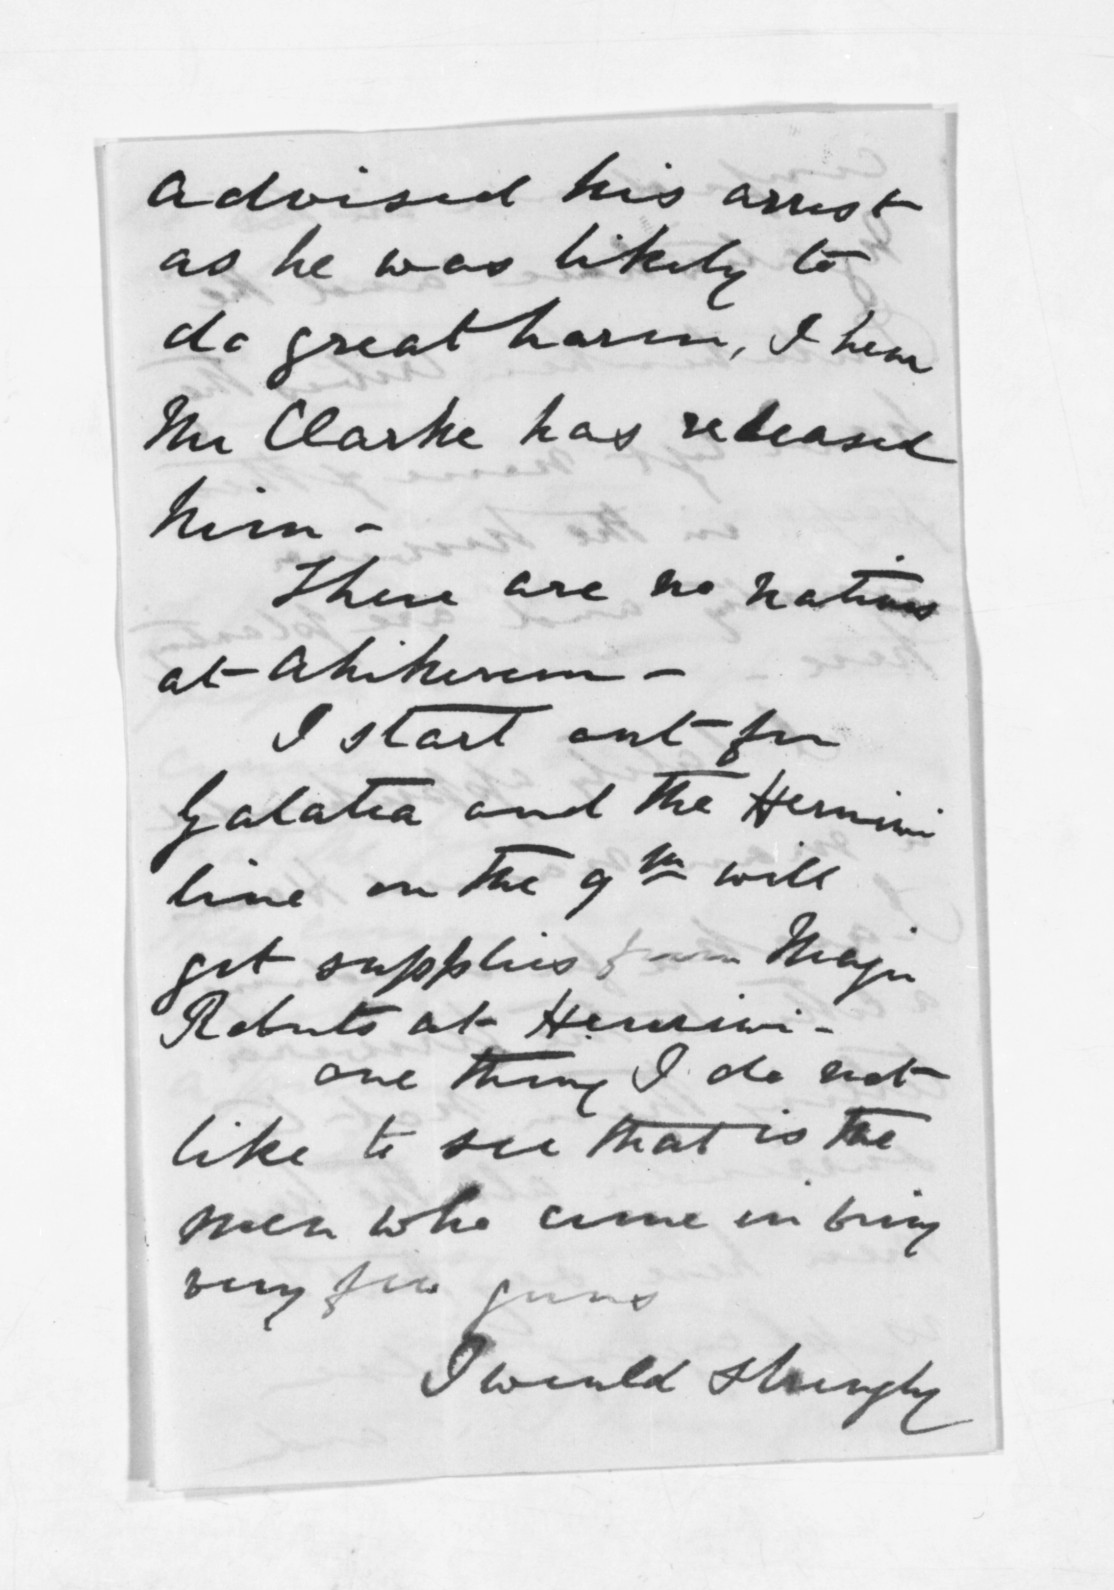 advised his arrest
as he was likely to
do great harm, I hear
Mr Clarke has released
him -
There are no natives
at Ahikereru -
I start out for
Galatea and the Heruiwi
line on the 9th will
get supplies from Major
Roberts at Heruiwi -
one thing I do not
like to see that is the
men who come in bring
very few guns
I would strongly